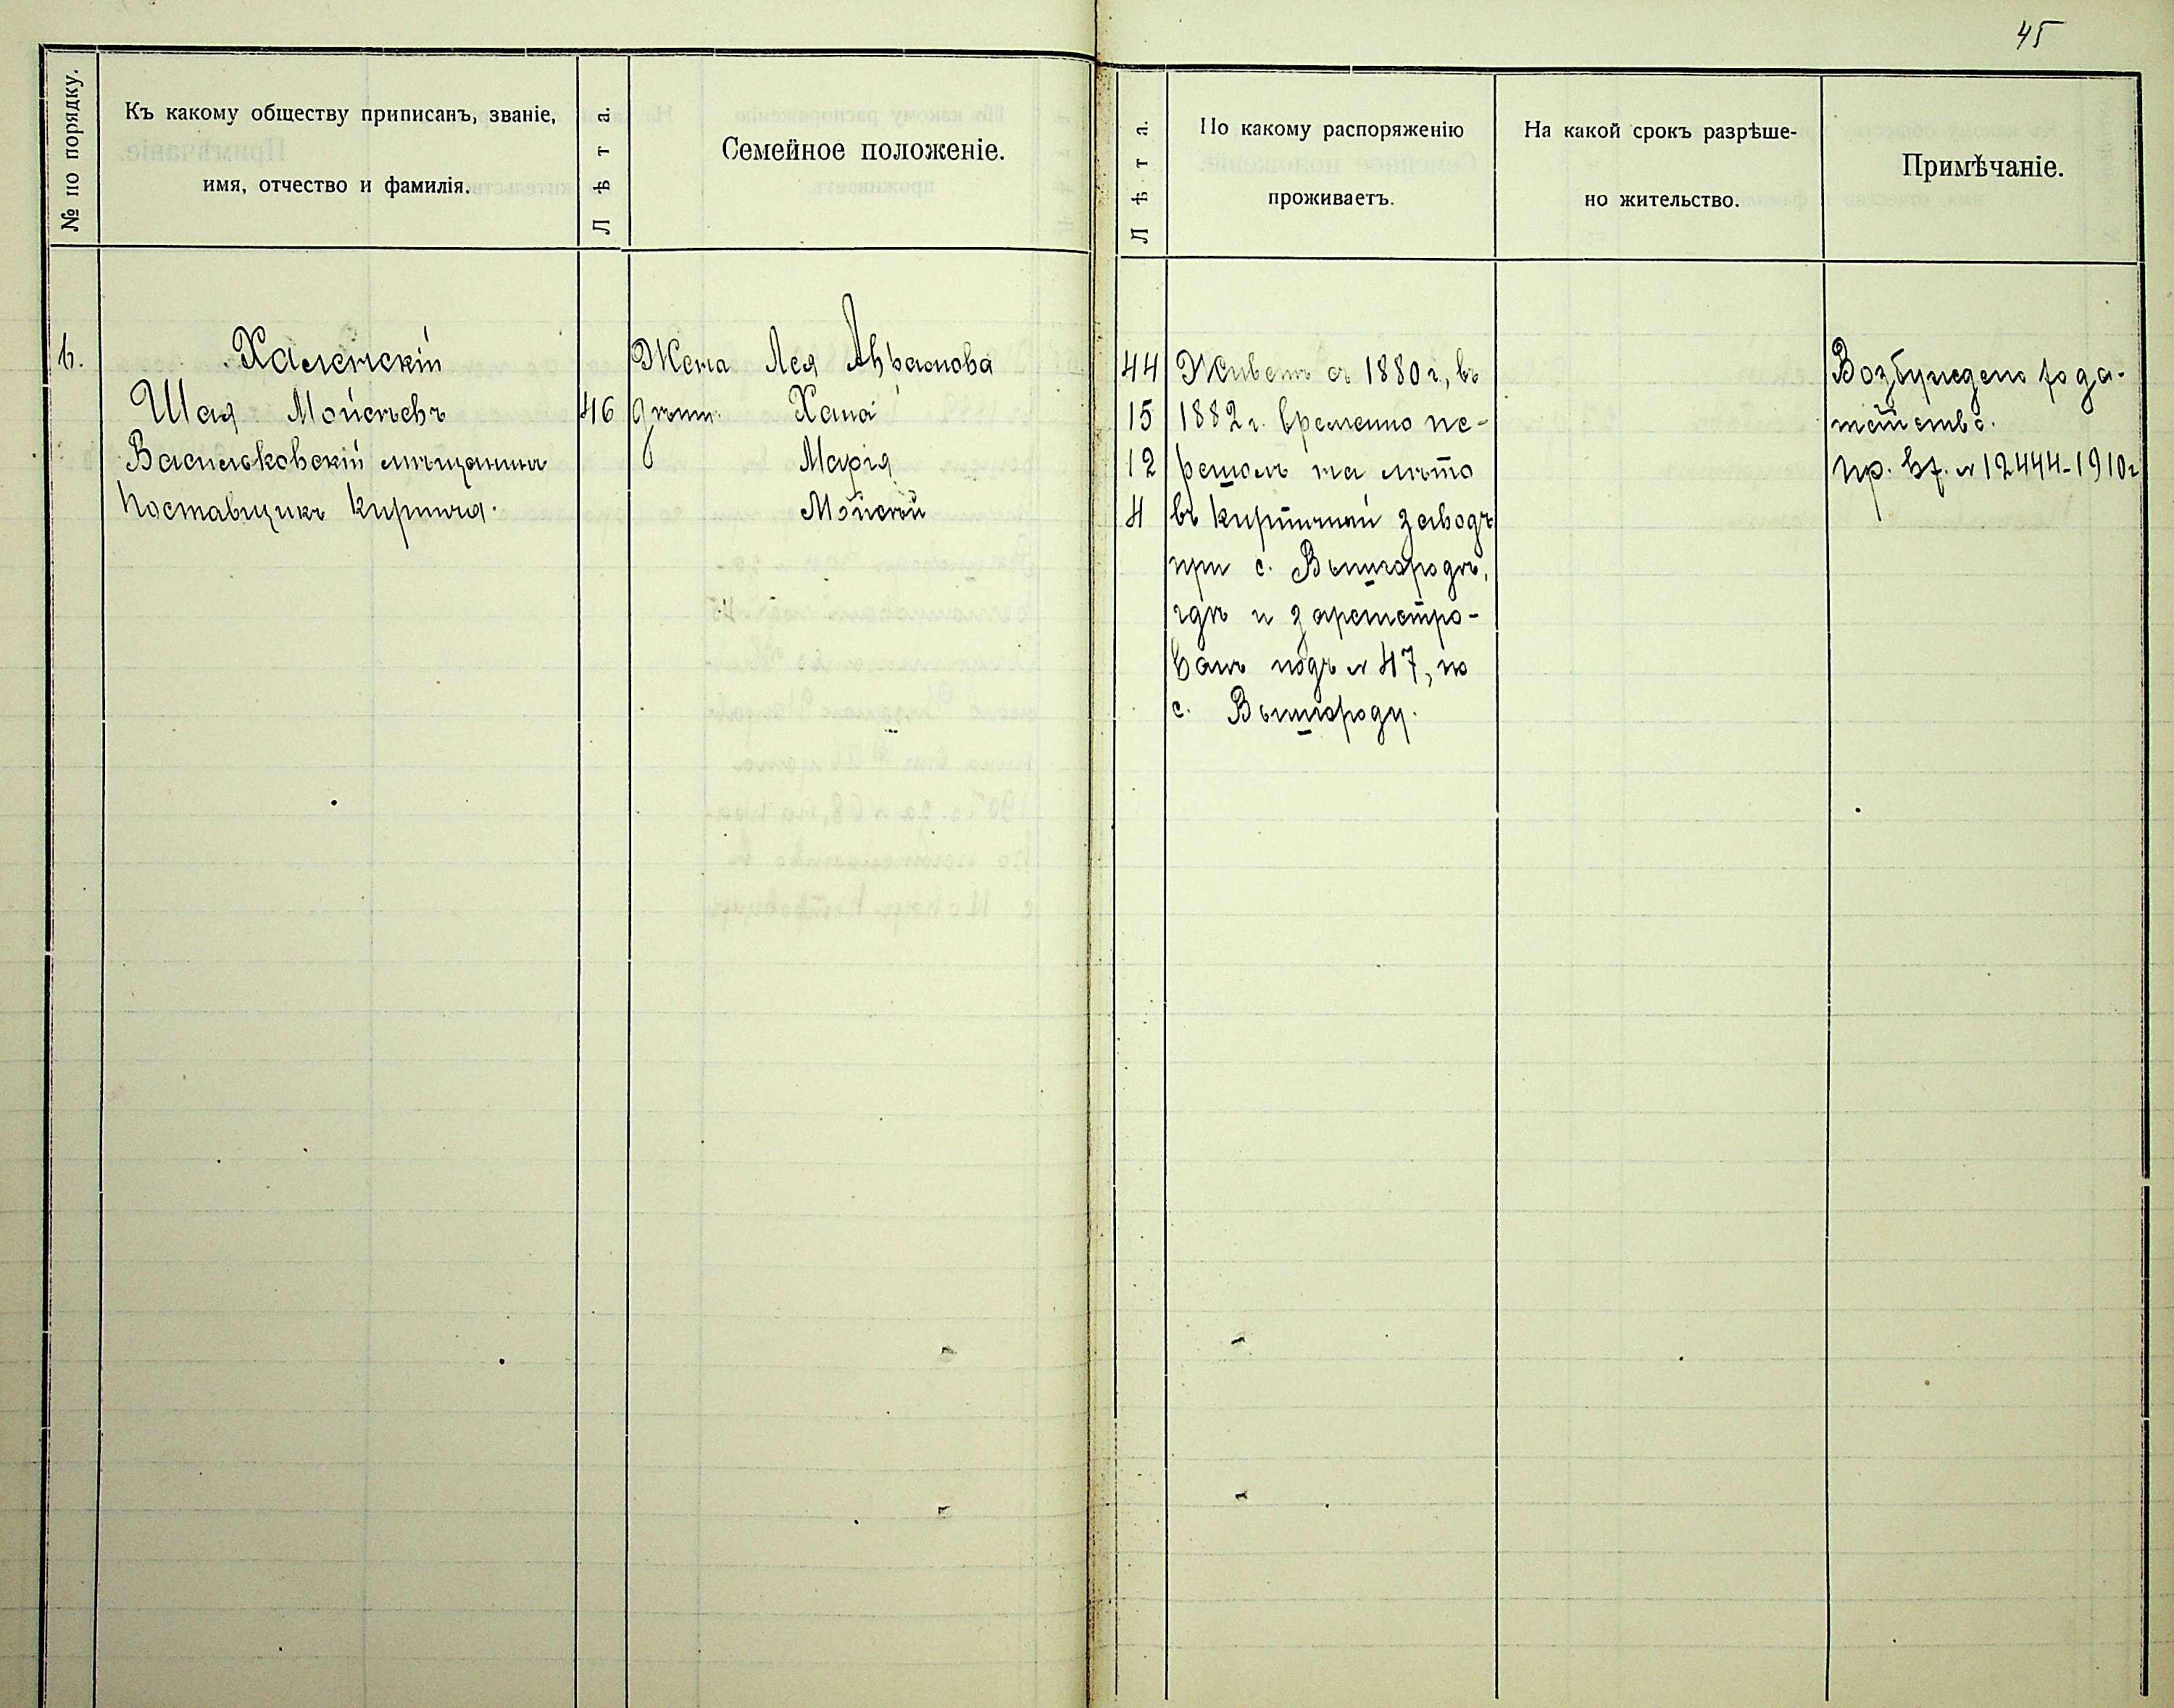 45
№ по порядку.
Къ какому обществу приписанъ, званіе,
имя, отчество и фамилія.
Лѣта.
Семейное положеніе.
Лѣта.
По какому распоряженію
проживаетъ.
На какой срокъ разрѣше-
но жительство.
Примѣчаніе.
6.
Халемскій
Шая Мойсѣевъ
Васильковскій мѣщанинъ
Поставщикъ кирпича.
46
Жена Лея Абрамова
дѣти: Хана
Марія
Мойсей
44
15
12
4
Живетъ съ 1880 г., въ
1882 г. временно пе-
решолъ на лѣто
въ кирпичный заводъ
при с. Вышгородѣ,
гдѣ и зарегистро-
ванъ подъ № 47, по
с. Вышгороду.
Возбуждено хода-
тайство.
пр. вх. № 12444-1910 г